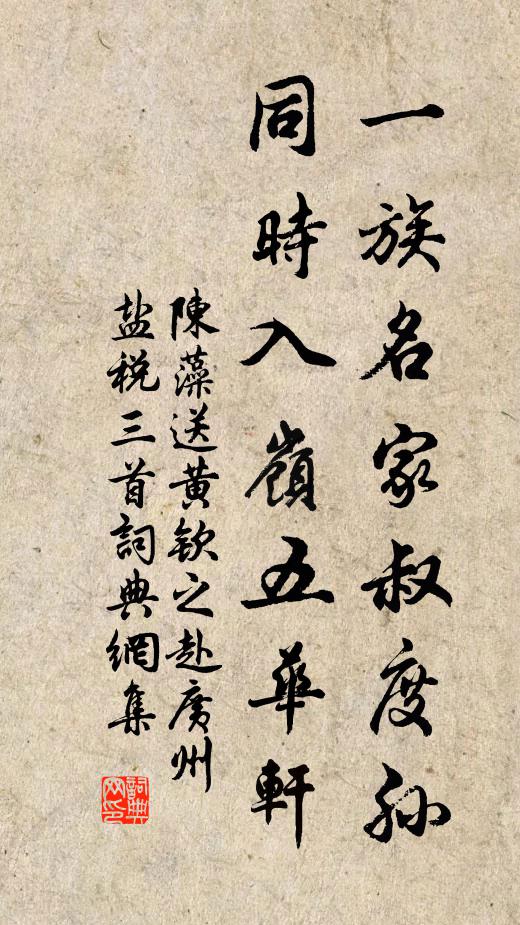 一族名家叔度孙
同時入嶺五華軒
陳藻送黄欽之赴廣州
盐税三首詞典網集
詞典网印